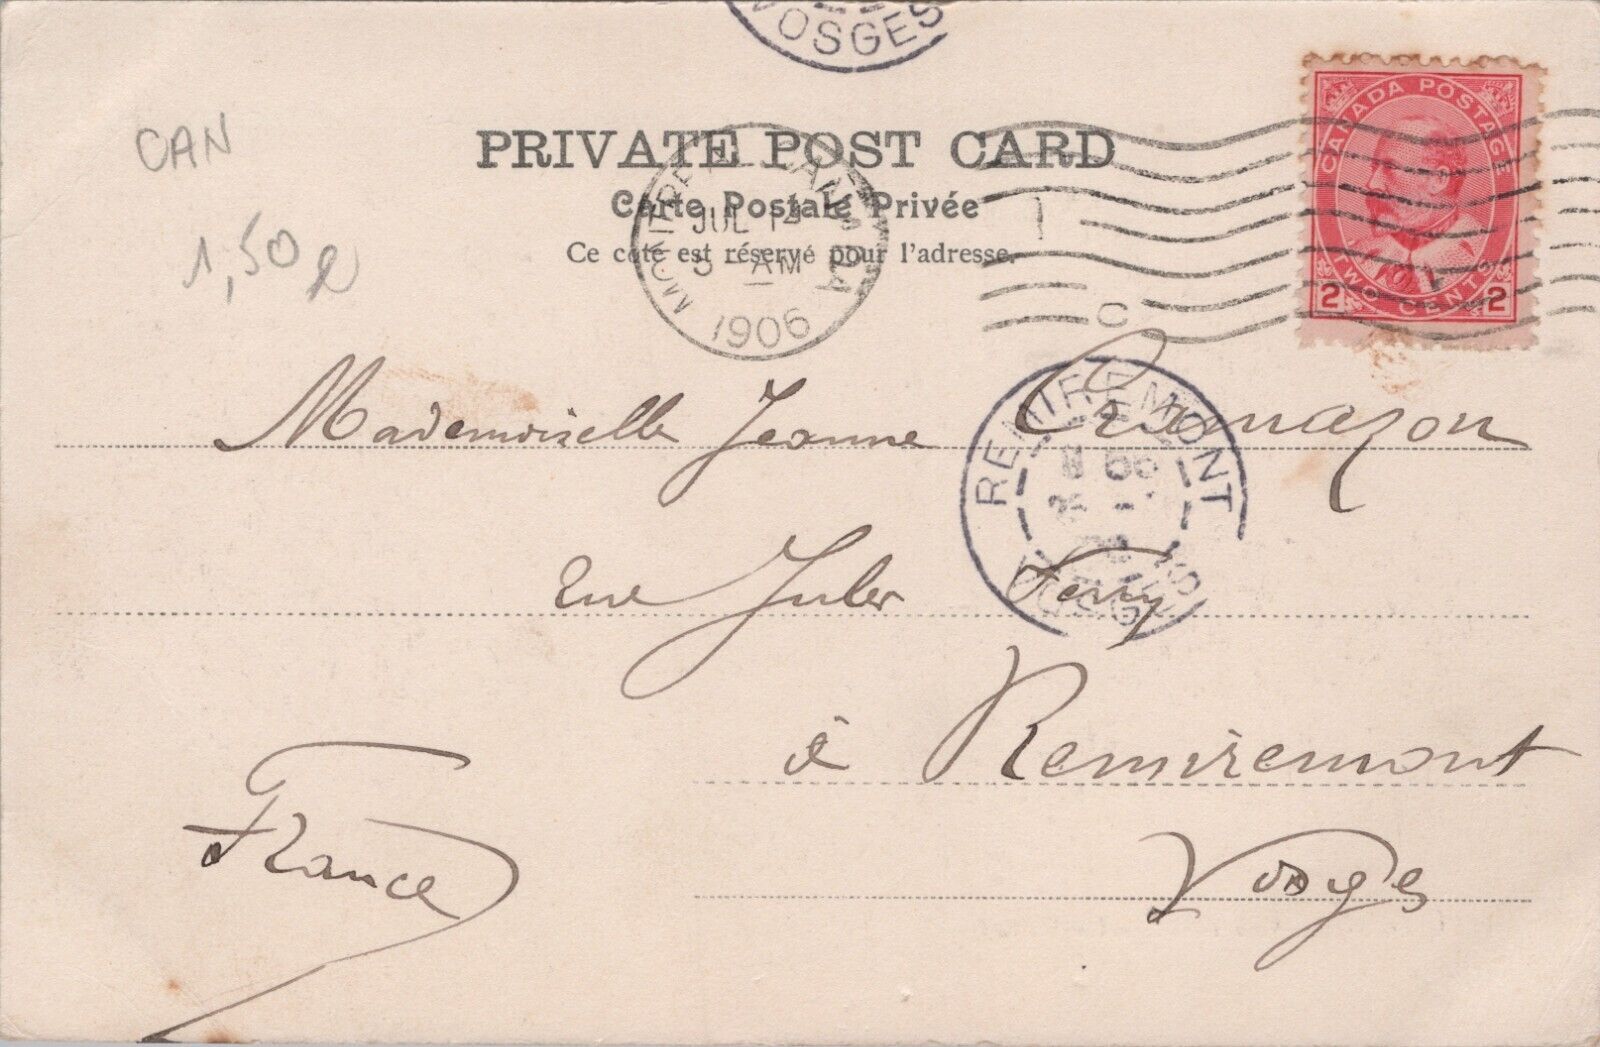 VOSGES
CANADA POSTAGE
TWO CENTS
2 2
CAN
1,50
PRIVATE POST CARD
Carte Postale Privée
Ce côté est réservé pour l'adresse.
MONTREAL CANADA
JUL 14
5 AM
1906
C
REMIREMONT
VOSGES
Mademoiselle Jeanne Chamazon
Rue Jules Ferry
à Remiremont
Vosges
France